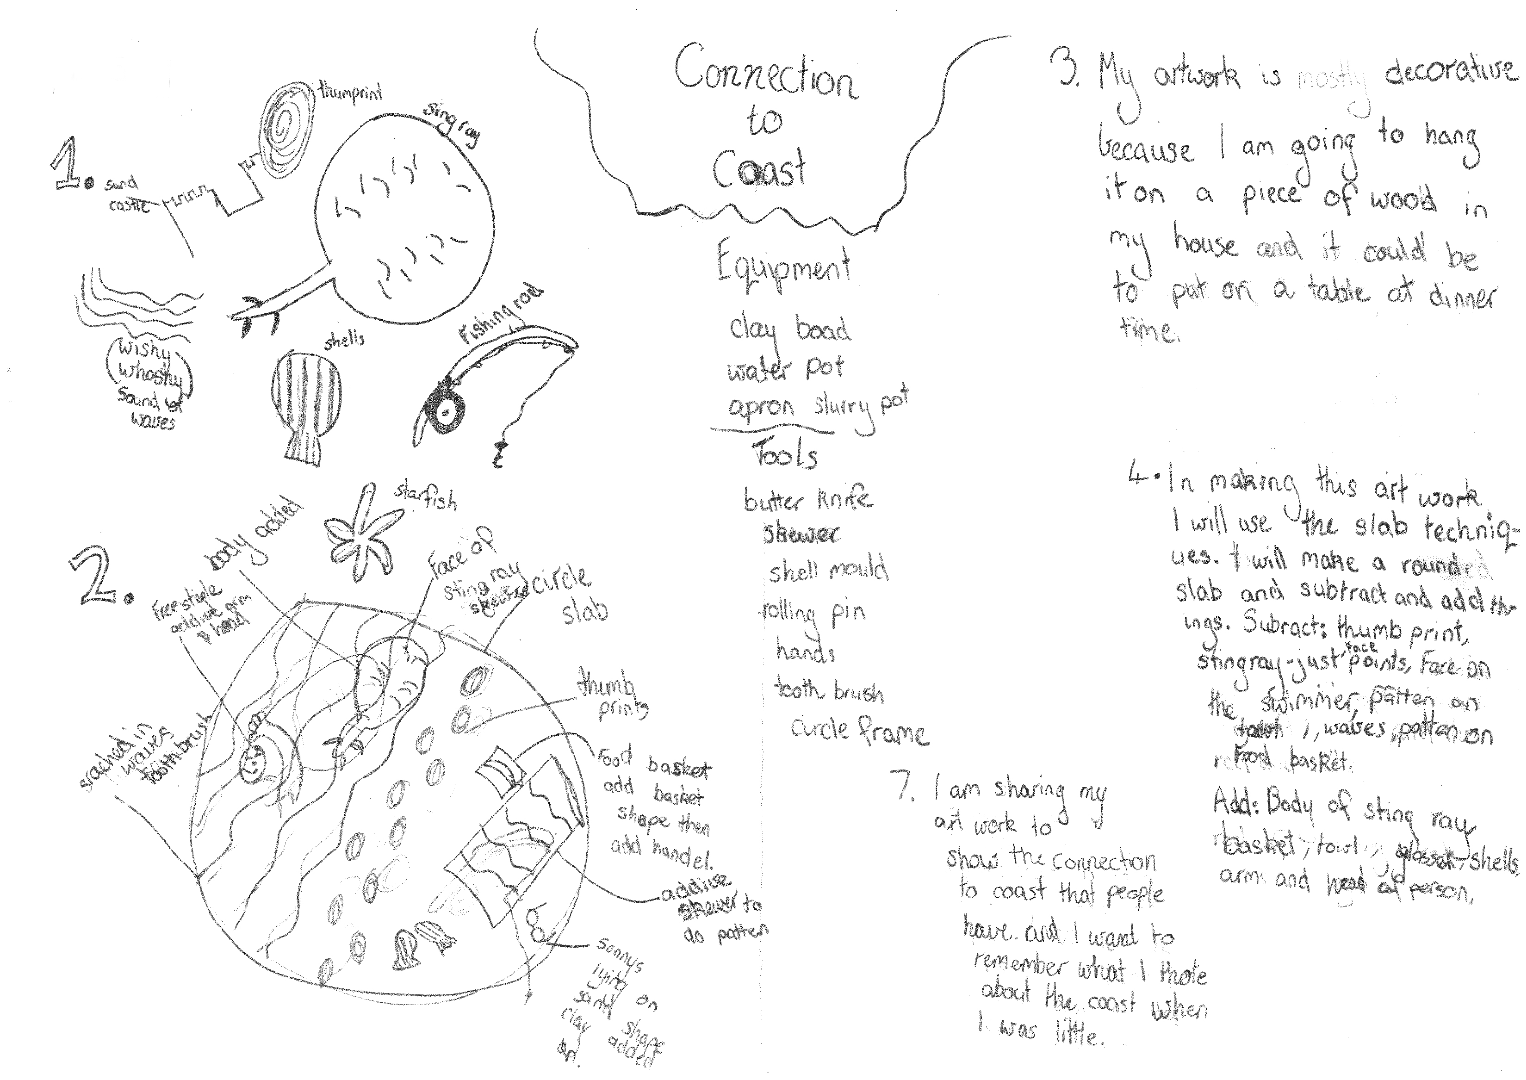 Connection
to
Coast
Equipment
clay boad
water pot
apron slurry pot
Tools
butter knife
skewer
shell mould
rolling pin
hands
tooth brush
circle frame
1.
thumprint
sing ray
sand
castle
wishy
whoshy
sound of
waves
shells
Fishing rod
starfish
2.
body added
Freestyle
additive arm
& head
Face of
sting ray
skewer
circle
slab
thumb
prints
scached in
waves
toothbrush
Food basket
add basket
shape then
add handel.
additive
skewer to
do patten
sonnys
lying on
sand shape
clay added
on.
3. My artwork is mostly decorative
because I am going to hang
it on a piece of wood in
my house and it could be
to put on a table at dinner
time.
4. In making this art work
I will use the slab techniq-
ues. I will make a rounded
slab and subtract and add th-
ings. Subract: thumb print,
stingray-just face points, Face on
the swimmer, patten on
, waves, patten on
Food basket.
Add: Body of sting ray
basket, towl, shells
arm and head of person,
7. I am sharing my
art work to
show the connection
to coast that people
have and I want to
remember what I thote
about the coast when
I was little.